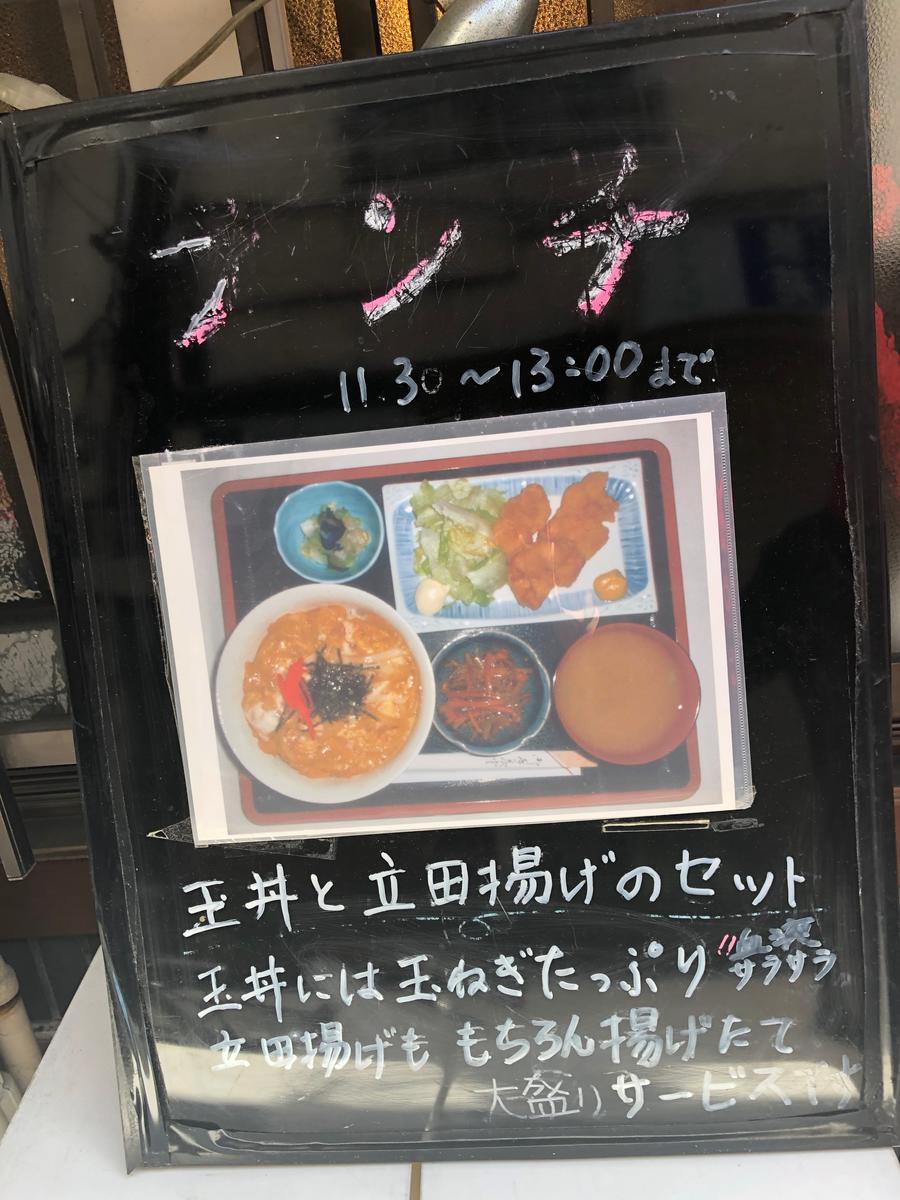 ランチ
11:30～13:00まで
玉丼と立田揚げのセット
玉丼には玉ねぎたっぷり!!血液サラサラ
立田揚げも もちろん揚げたて
大盛りサービスです